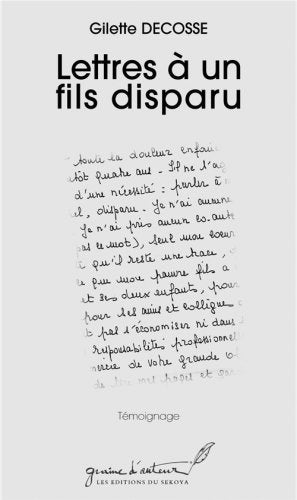 Gilette DECOSSE
Lettres à un
fils disparu
toute la douleur enfou
tôt quatre ans. Il ne l'a
d'une nécessité : parler à
el, disparu. Je n'ai aucune
Je n'ai pris aucun co-aute
pas ce mot), seul mon coeur
qu'il reste une trace,
que mon pauvre fils a
et ses deux enfants, pour
pour les amis et collègues
et pas l'économiser ni dans
responsabilités professionnel
de votre grande
Témoignage
graine d'auteur
LES EDITIONS DU SEKOYA